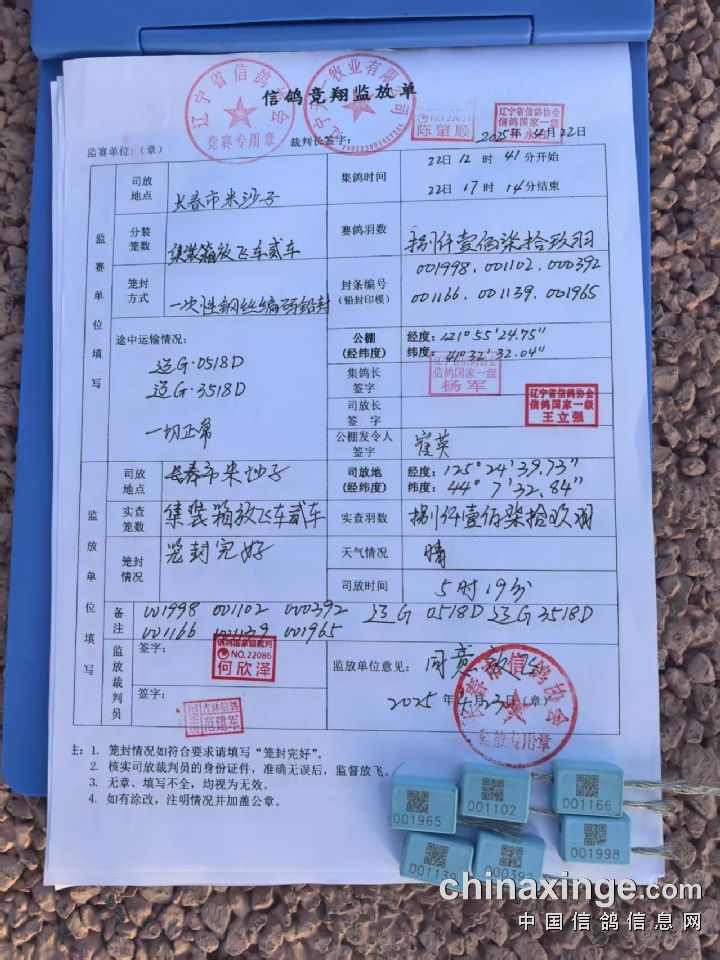 信鸽竞翔监放单
辽宁省信鸽协会
竞赛专用章
监赛单位：（章）
裁判长签字：
陈肇顺
辽宁省信鸽协会
信鸽国家一级
2025年4月22日
监赛单位填写
司放地点
长春市米沙子
集鸽时间
22日12时41分开始
22日17时14分结束
分装笼数
集装箱放飞车贰车
赛鸽羽数
捌仟壹佰柒拾玖羽
笼封方式
一次性钢丝编码铅封
封条编号
(铅封印模)
001998.001102.000392
001166.001139.001965
途中运输情况：
辽G·0518D
辽G·3518D
一切正常
公棚
(经纬度)
经度：121°55'24.75"
纬度：41°32'32.04"
集鸽长签字
信鸽国家一级
杨军
司放长签字
辽宁省信鸽协会
信鸽国家一级
王立强
公棚发令人签字
崔英
监放单位填写
司放地点
长春市米沙子
司放地
(经纬度)
经度：125°24'39.73"
纬度：44°7'32.84"
实查笼数
集装箱放飞车贰车
实查羽数
捌仟壹佰柒拾玖羽
笼封情况
笼封完好
天气情况
晴
司放时间
5时19分
备注
001998 001102 000392 辽G 0518D 辽G 3518D
001166 001139 001965
监放裁判员
签字：
信鸽国家级裁判
NO.22086
何欣泽
签字：
吉林信鸽
范建军
监放单位意见：同意放飞
2025年4月23日（章）
注：1. 笼封情况如符合要求请填写“笼封完好”。
2. 核实司放裁判员的身份证件，准确无误后，监督放飞。
3. 无章、填写不全，均视为无效。
4. 如有涂改，注明情况并加盖公章。
001965
001102
001166
001139
000392
001998
chinaxinge.com
中国信鸽信息网